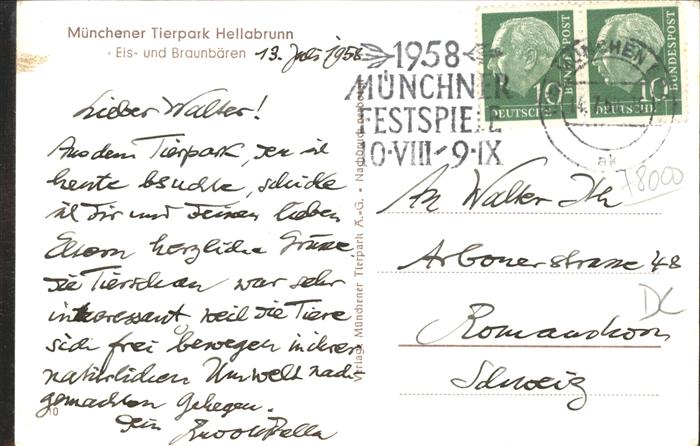 Münchener Tierpark Hellabrunn
Eis- und Braunbären
13. Juli 1958
Lieber Walter!
Aus dem Tierpark, den ich
heute besuchte, schicke
ich Dir und Deinen lieben
Eltern herzliche Grüsse.
Die Tierschau war sehr
interessant, weil die Tiere
sich frei bewegen in ihren
natürlichen Umwelt nach
gemachten Gehegen.
Dein
10
Verlag: Münchener Tierpark A.-G. - Nachdruck verboten
1958
MÜNCHNER
FESTSPIELE
10·VIII-9·IX
MÜNCHEN
14.7.
ak
10
DEUTSCHE
BUNDESPOST
10
DEUTSCHE
BUNDESPOST
78000
An Walter
Arbonerstrasse 48
DC
Romanshorn
Schweiz